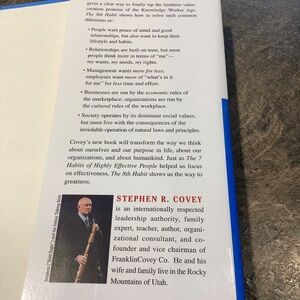 gives a clear way to finally tap the limitless value-
creation promise of the Knowledge Worker Age.
The 8th Habit shows how to solve such common
dilemmas as:
• People want peace of mind and good
relationships, but also want to keep their
lifestyle and habits.
• Relationships are built on trust, but most
people think more in terms of "me"—
my wants, my needs, my rights.
• Management wants more for less;
employees want more of "what's in it
for me" for less time and effort.
• Businesses are run by the economic rules of
the marketplace; organizations are run by
the cultural rules of the workplace.
• Society operates by its dominant social values,
but must live with the consequences of the
inviolable operation of natural laws and principles.
Covey's new book will transform the way we think
about ourselves and our purpose in life, about our
organizations, and about humankind. Just as The 7
Habits of Highly Effective People helped us focus
on effectiveness, The 8th Habit shows us the way to
greatness.
STEPHEN R. COVEY
is an internationally respected
leadership authority, family
expert, teacher, author, organi-
zational consultant, and co-
founder and vice chairman of
FranklinCovey Co. He and his
wife and family live in the Rocky
Mountains of Utah.